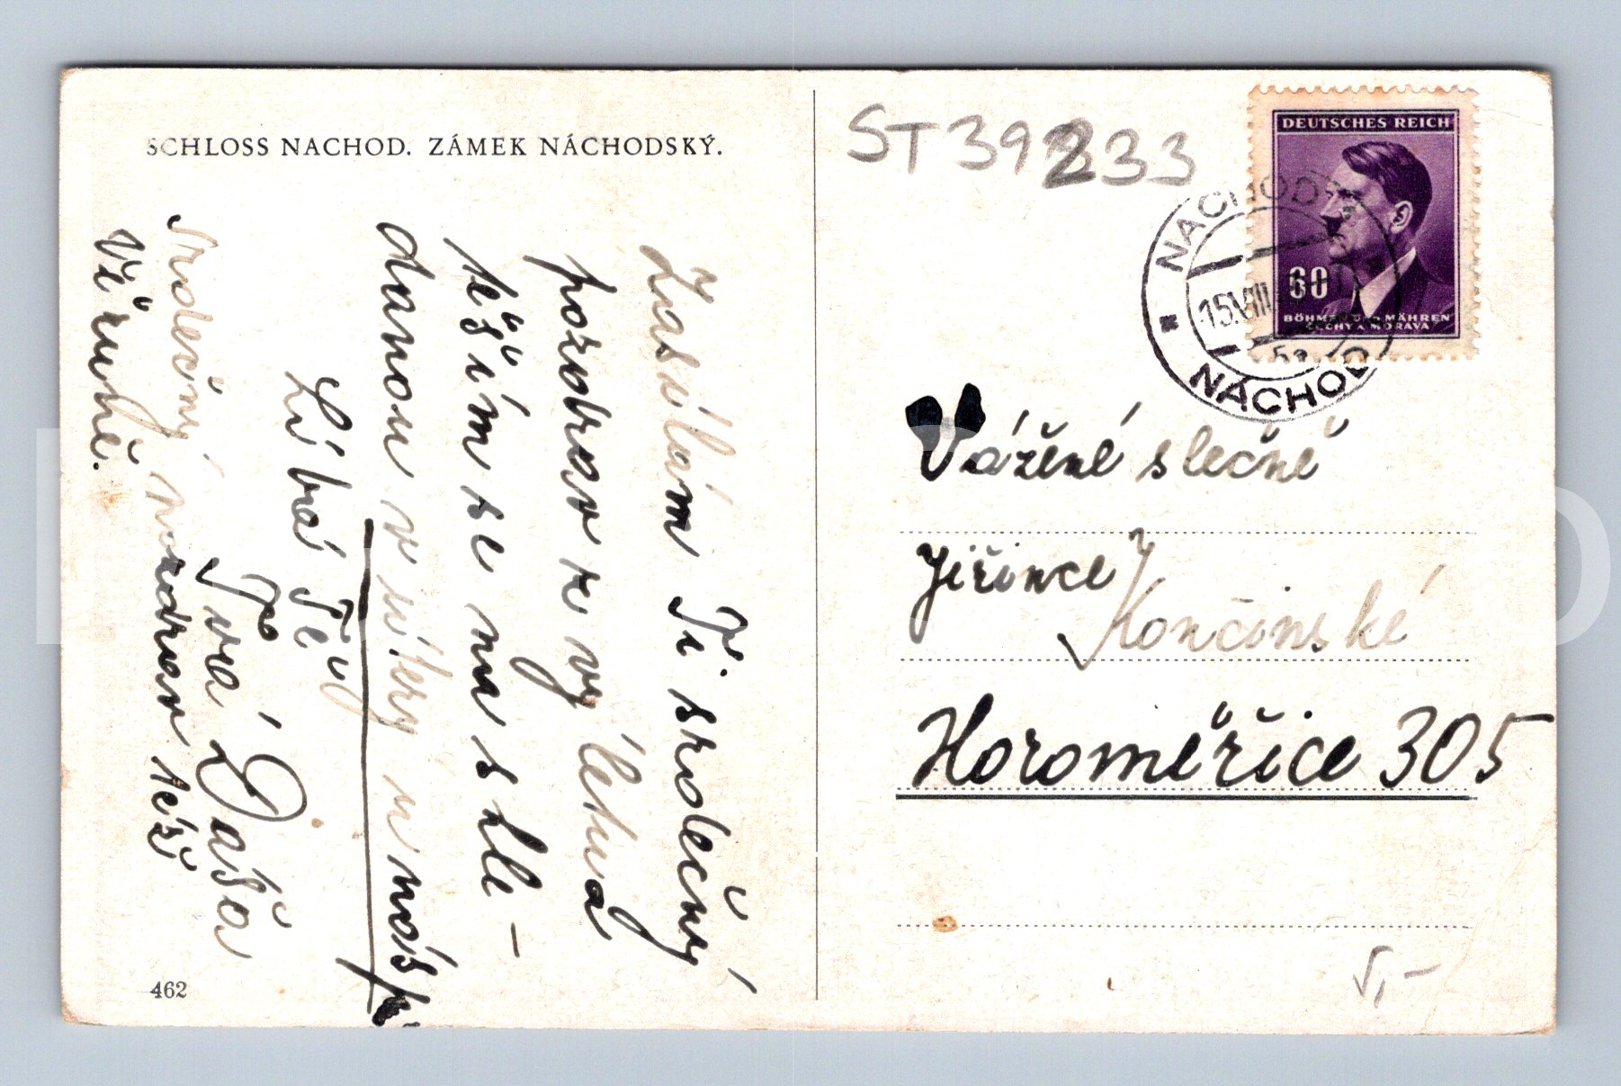 SCHLOSS NACHOD. ZÁMEK NÁCHODSKÝ.
Zasílám Ti srdečný
pozdrav z vý
těším se na shle-
danou v úterý u nás
Líbá Tě
Tvá Dáša
Srdečný pozdrav též
462
ST39233
DEUTSCHES REICH
60
BÖHMEN UND MÄHREN
ČECHY A MORAVA
NACHOD
15.VIII
NÁCHOD
Vážené slečně
Jiřince
Končinské
Horoměřice 305
5,-